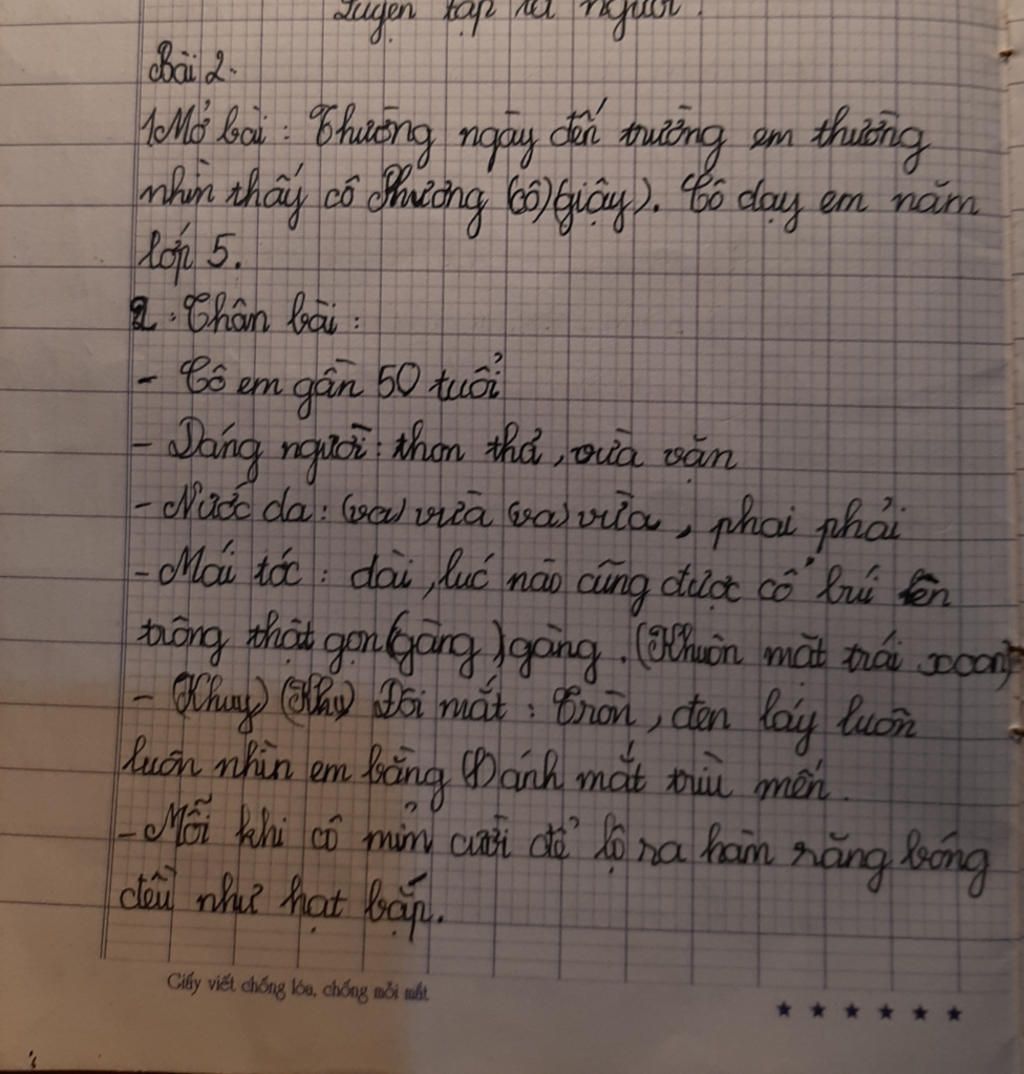 Luyện tập tả người.
Bài 2.
1 Mở bài: Thường ngày đến trường em thường
nhìn thấy cô Phương (cô) (giậy). Cô dạy em năm
lớp 5.
2. Thân bài:
- Cô em gần 50 tuổi
- Dáng người: thon thả, vừa vặn
- Nước da: (va) vừa (va) vừa, phai phải
- Mái tóc: dài, lúc nào cũng được cô búi lên
trông thật gọn (gàng) gàng. (Khuôn mặt trái xoan)
- (Khuy) (Khu) Đôi mắt: Tròn, đen láy luôn
luôn nhìn em bằng (t) ánh mắt trìu mến.
- Mỗi khi cô mỉm cười để lộ ra hàm răng bóng
đều như hạt bắp.
Giấy viết chống lóa, chống mỏi mắt